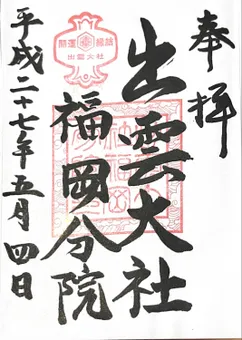 奉拝
出雲大社
福岡分院
平成二十七年五月四日
開運 縁結
出雲大社